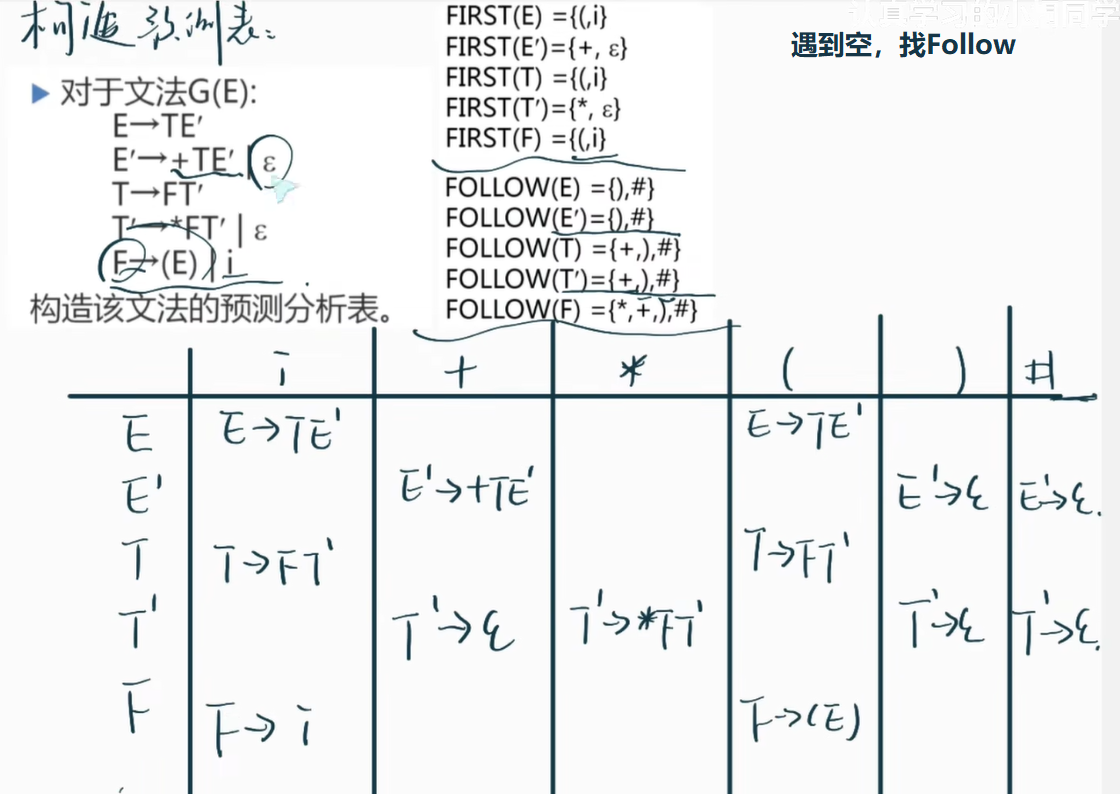 构造预测表:
认真学习的小明同学
遇到空，找Follow
▶ 对于文法G(E):
E→TE′
E′→+TE′ | ε
T→FT′
T′→*FT′ | ε
F→(E) | i
构造该文法的预测分析表。
FIRST(E) ={(,i}
FIRST(E′)={+, ε}
FIRST(T) ={(,i}
FIRST(T′)={*, ε}
FIRST(F) ={(,i}
FOLLOW(E) ={),#}
FOLLOW(E′)={),#}
FOLLOW(T) ={+,),#}
FOLLOW(T′)={+,),#}
FOLLOW(F) ={*,+,),#}
i + * ( ) #
E E→TE' E→TE'
E' E'→+TE' E'→ε E'→ε.
T T→FT' T→FT'
T' T'→ε T'→*FT' T'→ε T'→ε.
F F→i F→(E)